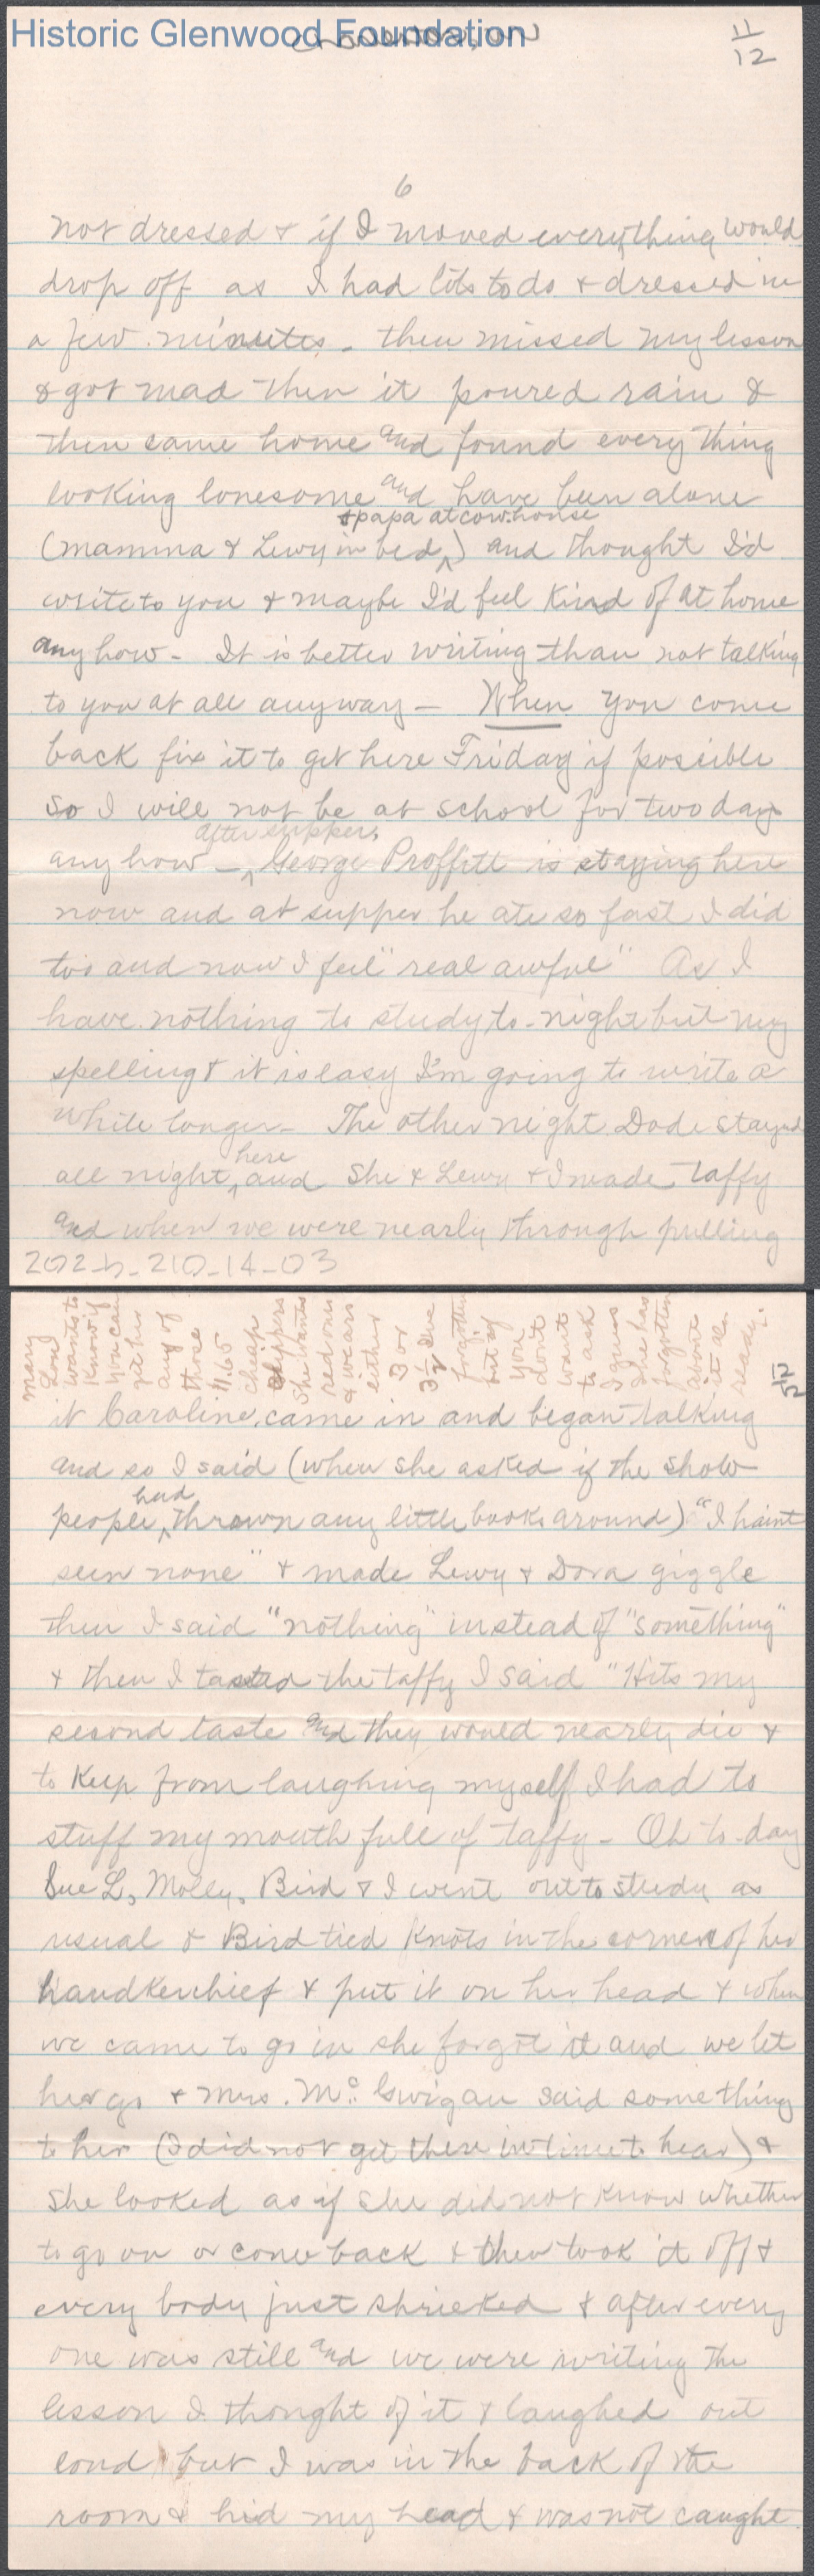 Historic Glenwood Foundation
11/12
6
not dressed & if I moved everything would
drop off as I had lots to do & dressed in
a few minutes - then missed my lesson
& got mad then it poured rain &
then came home and found everything
looking lonesome and have been alone
(mamma & Lewy in bed, & papa at cow-house) and thought I'd
write to you & maybe I'd feel kind of at home
anyhow - It is better writing than not talking
to you at all anyway - When you come
back fix it to get here Friday if possible
so I will not be at school for two days
anyhow - after supper, George Proffitt is staying here
now and at supper he ate so fast I did
too and now I feel "real awful" As I
have nothing to study to-night but my
spelling & it is easy I'm going to write a
while longer - The other night Dode stayed
all night here, and she & Lewy & I made taffy
and when we were nearly through pulling
202-b-210-14-03
Mary Lou wants to know if you can get her any of those $1.65 cheap slippers She wants red ones & wears either 3 or 3½ I've forgotten but if you don't want to ask I guess she has forgotten about it already.
12/12
it Caroline, came in and began talking
and so I said (when she asked if the show
people had thrown any little books around) "I haint
seen none" & made Lewy & Dora giggle
then I said "nothing" instead of "something"
& then I tasted the taffy I said "Hits my
second taste and they would nearly die &
to keep from laughing myself I had to
stuff my mouth full of taffy - Oh to-day
Sue L, Molly, Bird & I went out to study as
usual & Bird tied knots in the corners of her
handkerchief & put it on her head & when
we came to go in she forgot it and we let
her go & Mrs. Mc. Gwigan said something
to her (I did not get there in time to hear) &
she looked as if she did not know whether
to go on or come back & then took it off &
every body just shrieked & after every
one was still and we were writing the
lesson I thought of it & laughed out
loud but I was in the back of the
room & hid my head & was not caught.